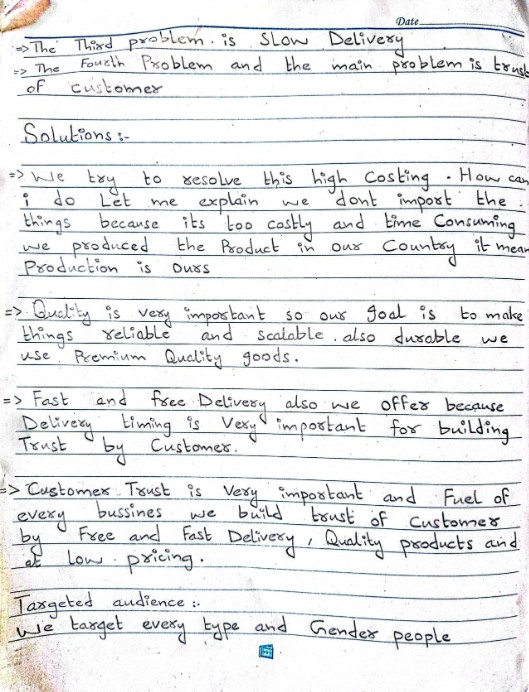 Date
=> The Third problem. is SLOW Delivery
=> The Fourth Problem and the main problem is trust
of customer
Solutions :-
=> We try to resolve this high Costing. How can
i do Let me explain we dont import the
things because its too costly and time Consuming
we produced the Product in our Country it mean
Production is Ours
=> Quality is very important so our goal is to make
things reliable and scalable. also durable we
use Premium Quality goods.
=> Fast and free Delivery also we offer because
Delivery timing is Very important for building
Trust by Customer.
=> Customer Trust is Very important and Fuel of
every bussines we build trust of Customer
by Free and Fast Delivery, Quality products and
at Low pricing.
Targeted audience :-
We target every type and Gender people